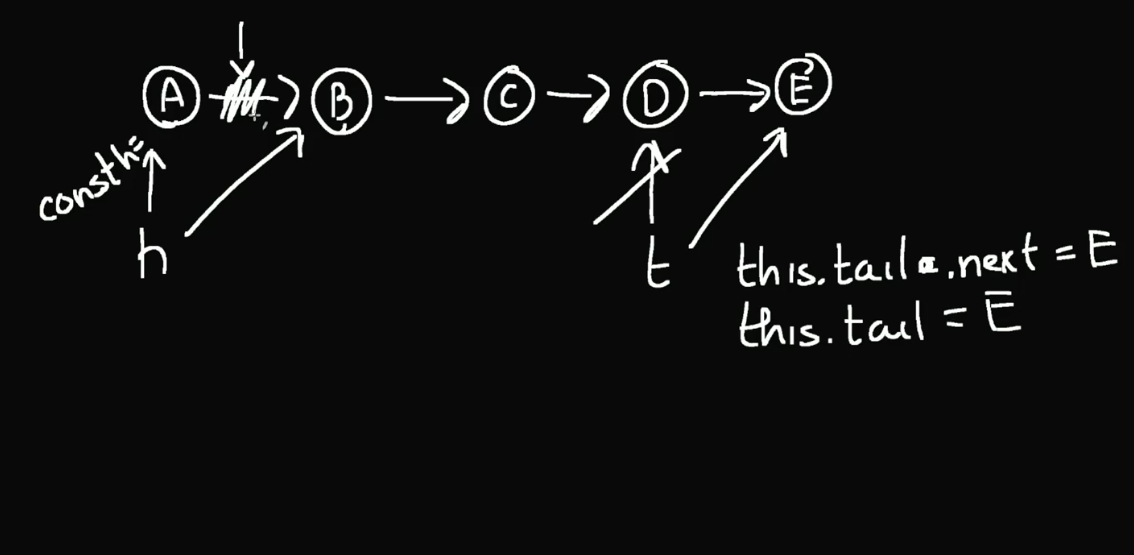 A B C D E
const h =
h
t
this.tail.next = E
this.tail = E